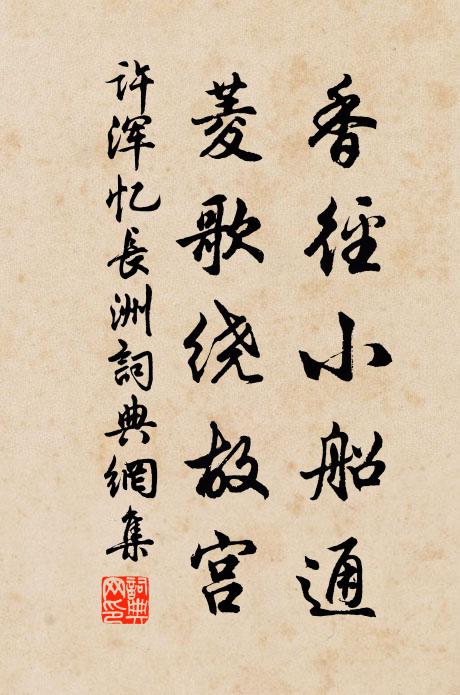 香徑小船通
菱歌绕故宫
许浑忆長洲詞典網集
詞典网印